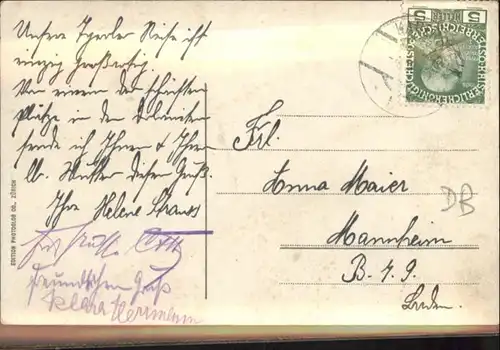 Unsere Tyroler Reise ist
einzig großartig.
Von einem der schönsten
Plätze in den Dolomiten
sende ich Ihnen & Ihrer
lb. Mutter diesen Gruß.
Ihre Helene Strauss
Otto
freundlichen Gruß
Klara Herrmann
EDITION PHOTOGLOB CO., ZÜRICH
5 HELLER 5
Frl.
Anna Maier
Mannheim
B. 4. 9.
Baden.
DB